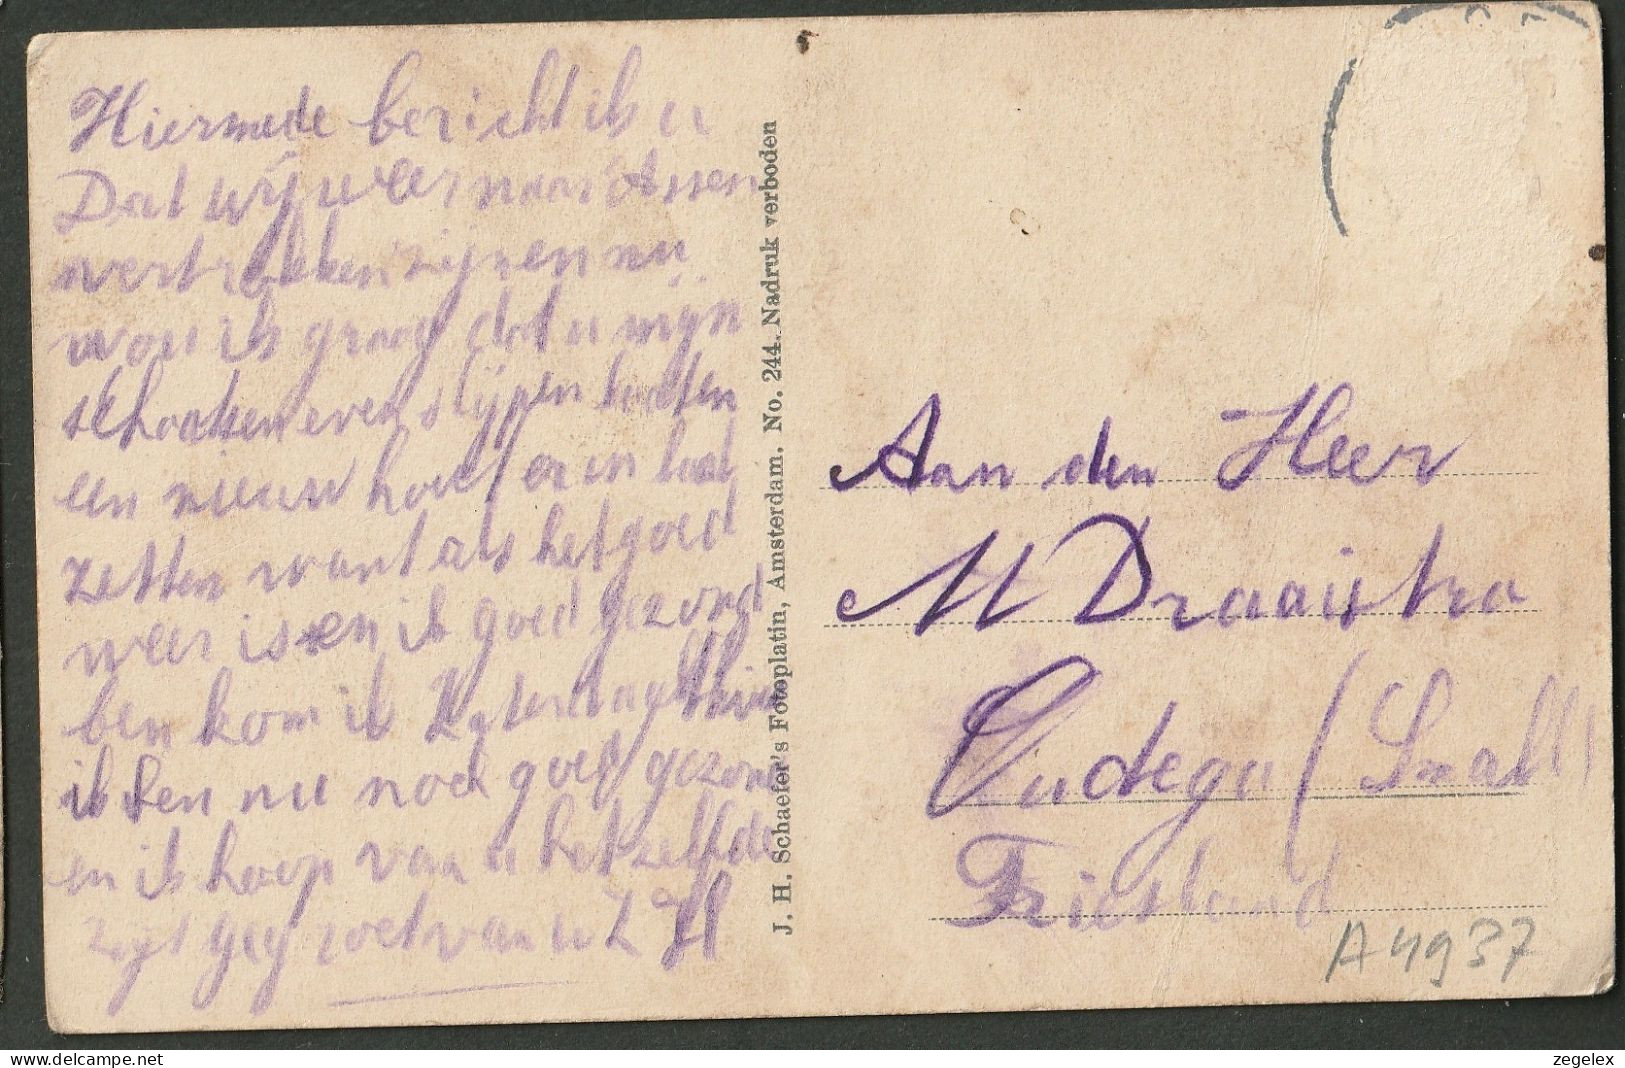 Hiermede bericht ik u
Dat wij weer naar Assen
vertrokken zijn en nu
wou ik graag dat u mijn
schaatsen even slijpen laaten
een nieuw hout er in laat
zetten want als het goed
weer is en ik goed gezond
ben kom ik Zaterdag
ik ben nu noch goed gezond
en ik hoop van u het zelfde
zijt gegroet van u Z H
J. H. Schaefer's Fotoplatin, Amsterdam, No. 244. Nadruk verboden
Aan den Heer
M Draaistra
Oudega (Small)
Friesland
A4937
zegelex